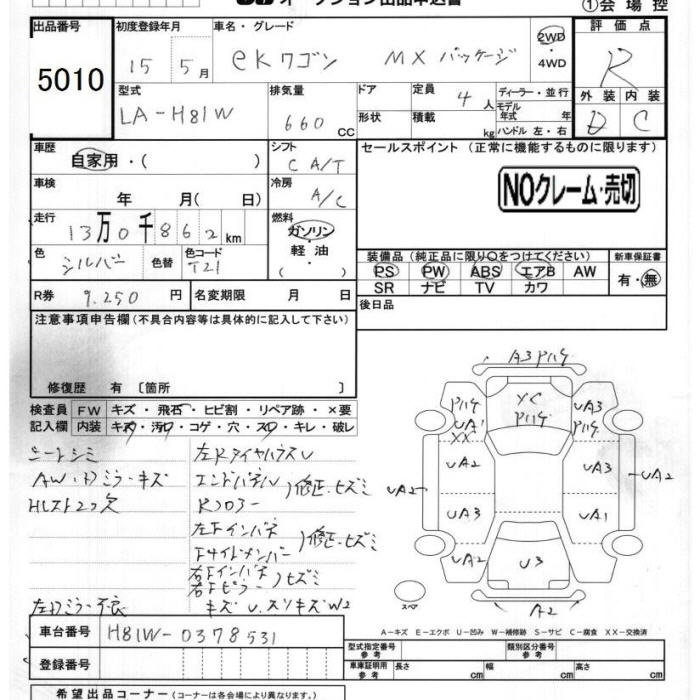 オークション出品申込書
①会場控
出品番号 5010
初度登録年月 15 5月
車名・グレード eKワゴン MXパッケージ
2WD・4WD
評価点 R
型式 LA-H81W
排気量 660 CC
ドア 形状
定員 4人
積載 kg
ディーラー・並行
モデル年式 年
ハンドル 左・右
外装 D
内装 C
車歴 自家用・( )
シフト C A/T
セールスポイント (正常に機能するものに限ります)
NOクレーム・売切
車検 年 月( 日)
冷房 A/C
走行 13万0千862km
燃料 ガソリン・軽油・( )
色 シルバー
色替
色コード T21
装備品 (純正品に限り○をつけてください)
新車保証書
PS PW ABS エアB AW
SR ナビ TV カワ
有・無
R券 9,250円
名変期限 月 日
後日品
注意事項申告欄 (不具合内容等は具体的に記入して下さい)
修復歴 有 [箇所 ]
検査員記入欄
FW キズ・飛石・ヒビ割・リペア跡・×要
内装 キズ・汚れ・コゲ・穴・スレ・キレ・破レ
シートシミ
AW・ドアミラーキズ
左ドアミラー不良
左Rタイヤハウス U
エンドパネル
Rフロアー
)修正・ヒズミ
左Fインパネ
Fサイドメンバー
)修正・ヒズミ
右Fインパネ
右Fピラー
)ヒズミ
キズ U.スリキズ W2
A3 P ハゲ
P ハゲ
UA1
XX
XC
P ハゲ
UA3
P ハゲ
UA2
UA3
UA2
UA2
UA3
UA1
UA2
U3
UA2
A2
スペア
A-キズ E-エクボ U-凹み W-補修跡 S-サビ C-腐食 XX-交換済
車台番号 H81W-0378531
登録番号
型式指定番号 参考
類別区分番号 参考
車庫証明用 参考 長さ cm 幅 cm 高さ cm
希望出品コーナー (コーナーは各会場により異なります。)